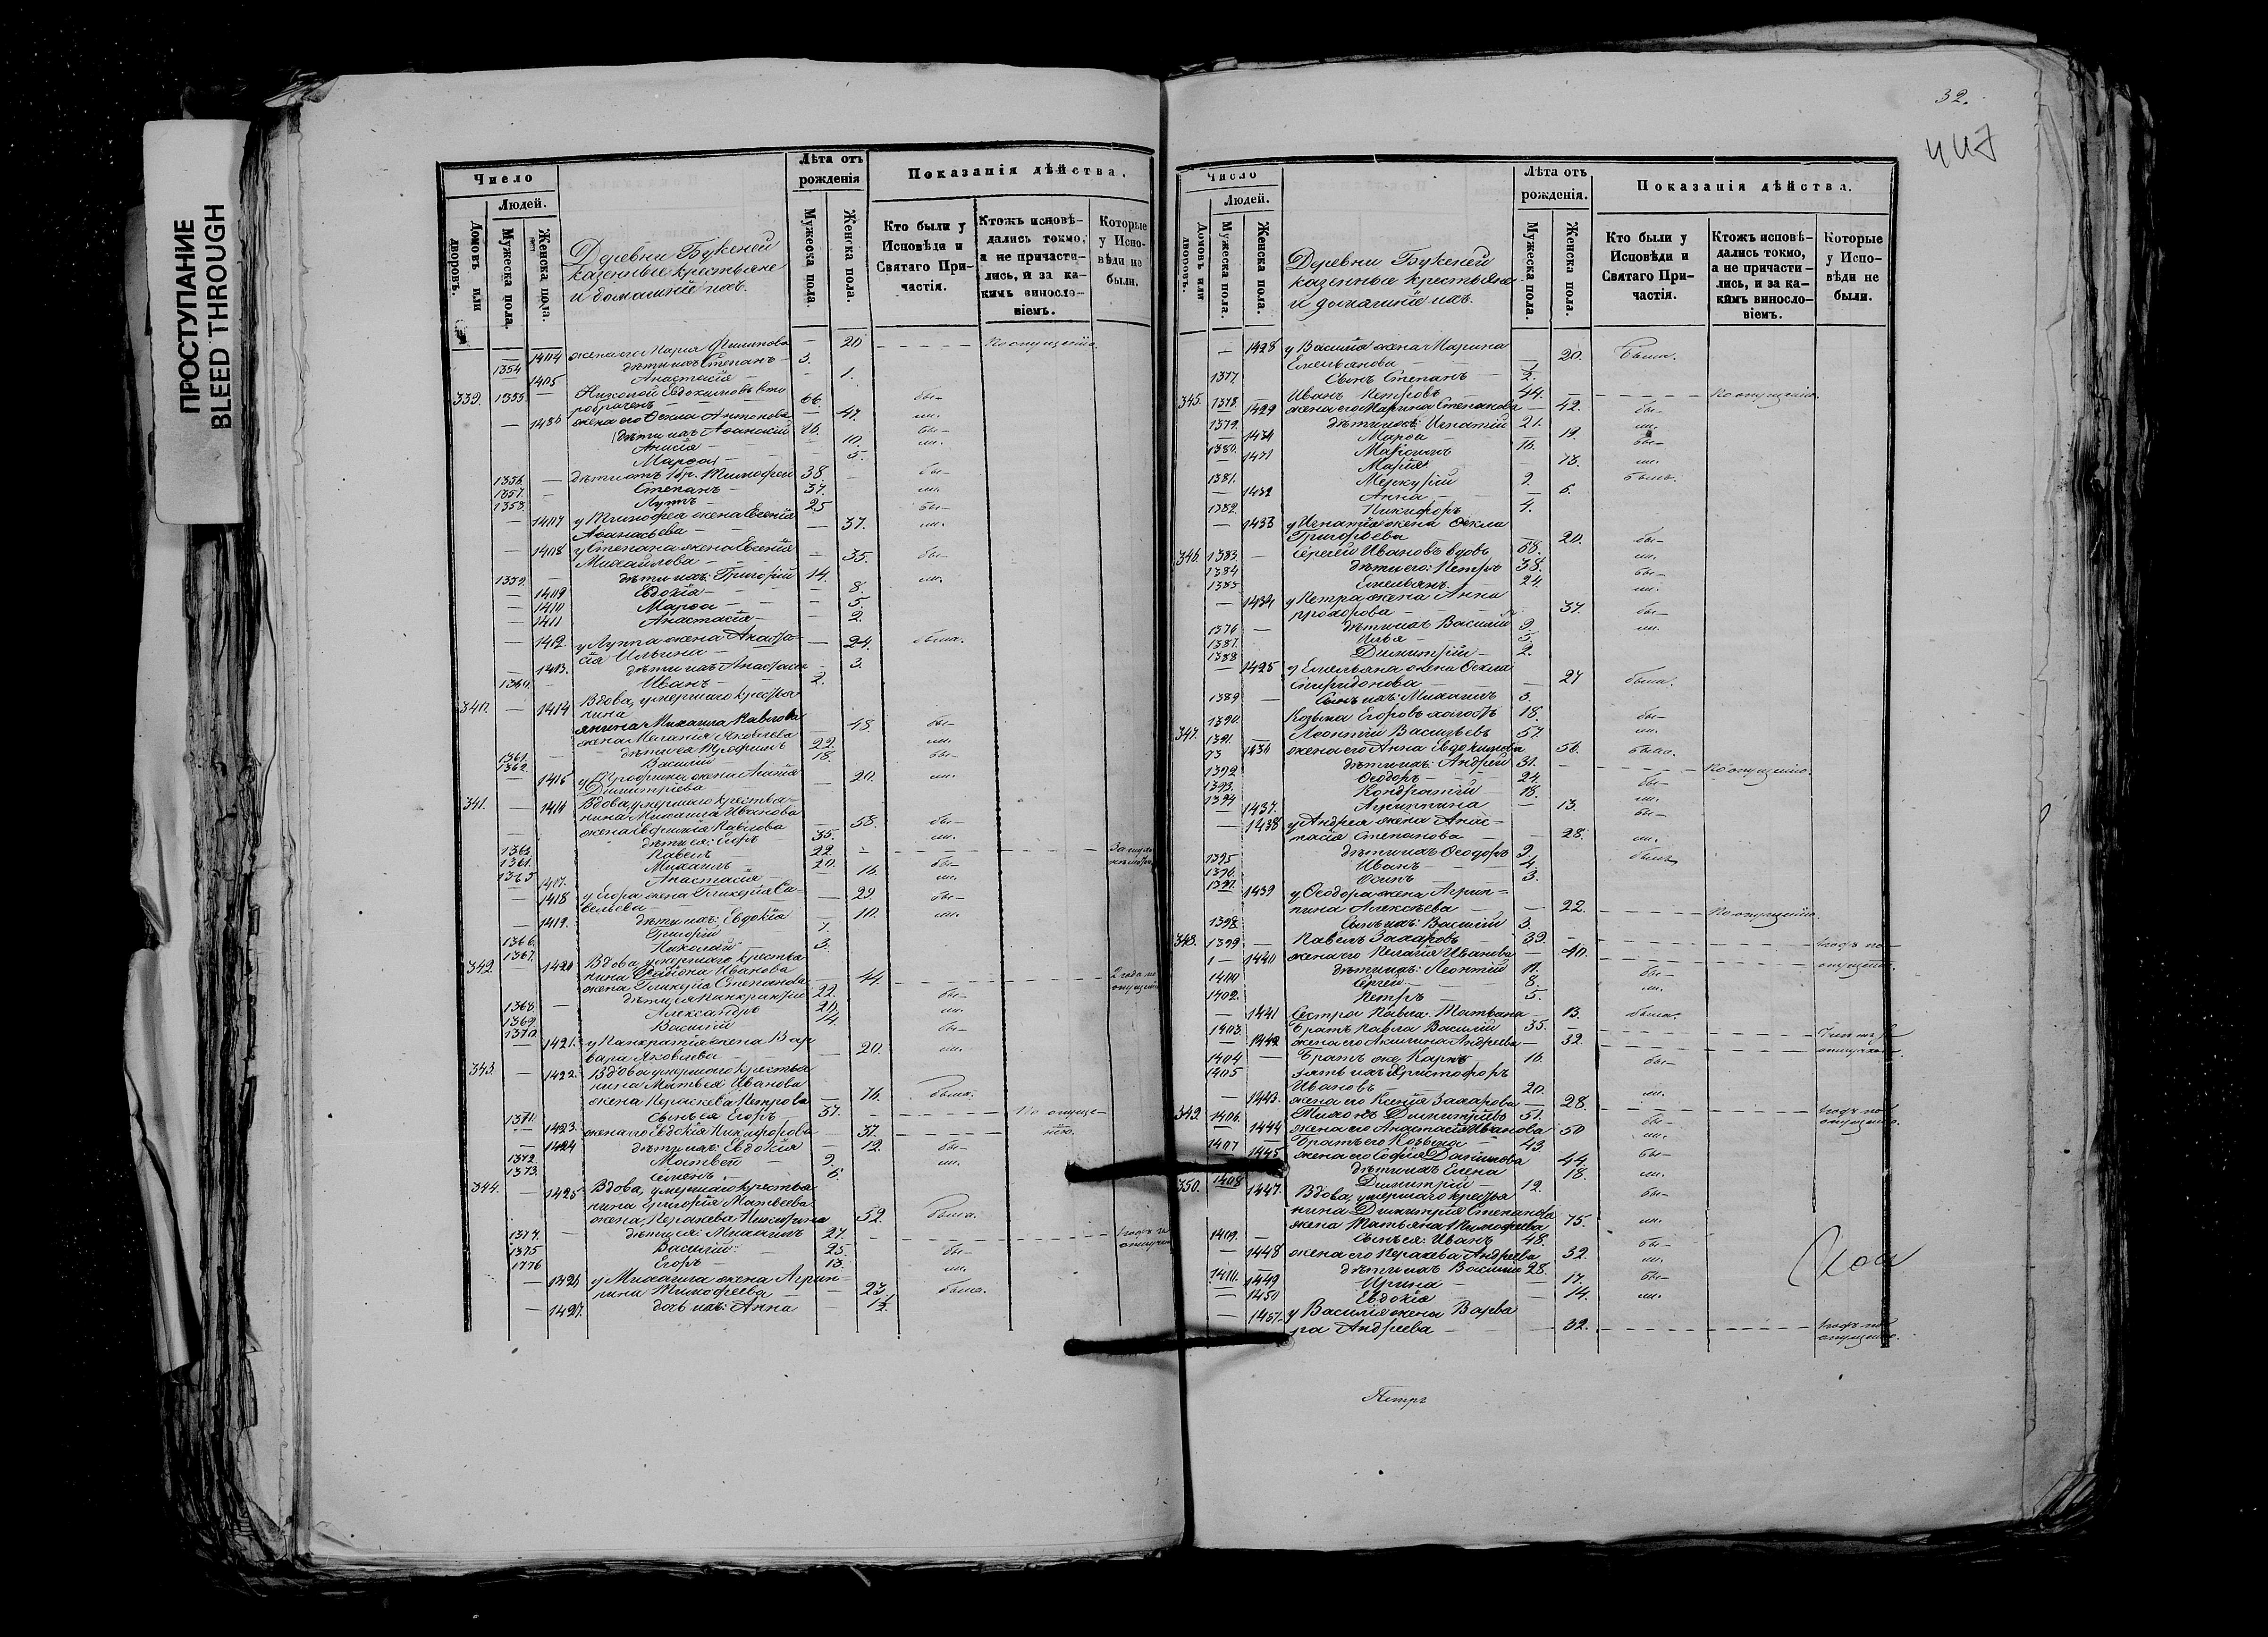 ПРОСТУПАНИЕ
BLEED THROUGH
Число
Людей.
Домовъ или дворовъ.
Мужеска пола.
Женска пола.
Деревни Букеней
казенные крестьяне
и домашніе ихъ.
Лѣта отъ рожденія
Мужеска пола.
Женска пола.
Показанія дѣйства.
Кто были у Исповѣди и Святаго Причастія.
Ктожъ исповѣдались токмо, а не причастились, и за какимъ винословіемъ.
Которые у Исповѣди не были.
1404 жена его Марія Филипова — 20 По опущенію.
1354 дѣти ихъ Степанъ — 3.
1405 Анастасія — 1.
339. 1355. Николай Евдокимовъ вто
робрачен — 66. бы—
— 1406 жена его Ѳекла Антонова — 47. ли.
дѣти ихъ Аѳанасій 16. бы—
Анисія — 10. ли.
Марѳа — 5.
1356. — дѣти отъ 1 бр. Тимофей 38. бы—
1357. — Степанъ — 37. ли.
1358. Луппъ — 25 бы—
— 1407 у Тимофея жена Евгенія
Аѳанасьева — 37. ли.
— 1408 у Степана жена Евгенія
Михайлова — 35. бы—
1359. — дѣти ихъ: Григорій 14. ли.
— 1409 Евдокія — 8.
— 1410 Марѳа — 5.
— 1411 Анастасія — 2.
— 1412. у Луппа жена Анастасія Ильина — 24. была.
— 1413. дѣти ихъ Анастасія — 3.
1360. — Иванъ — 2.
340. — 1414 Вдова, умершаго крестья
нина Михаила Павлова
жена Меланія Яковлева — 48. бы—
1361. дѣти ея Трофимъ 22. ли.
1362. Василій — 18. бы—
1415 у Трофима жена Агаѳія
Димитріева — 20. ли.
341. — 1416 Вдова, умершаго крестья—
нина Михаила Иванова
жена Евфимія Павлова — 58. бы—
— дѣти ея: Егоръ 35. ли.
1363. Павелъ 22. —
1364. Михаилъ — 20. бы—
1365 1417. Анастасія — 16. ли.
— 1418 у Егора жена Гликерія Са—
вельева — 29. бы—
— 1419. дѣти ихъ: Евдокія — 10. ли.
1366. Григорій 7.
1367. Николай — 3.
342. 1420 Вдова умершаго крестья
нина Родіона Иванова
жена Гликерія Степанова — 44. 2 года по опущенію
1368. — дѣти ея Панкратій 22. бы—
1369. Александръ — 20. ли.
1370. Василій 14. бы—
— 1421. у Панкратія жена Вар
вара Яковлева — 20. ли.
343. — 1422. Вдова умершаго крестья
нина Матвея Иванова
жена Параскева Петрова — 76. была.
1371. Сынъ ея Егоръ — 37. По опуще—
— 1423. жена его Евдокія Никифорова — 37. нію.
— 1424 дѣти ихъ: Евдокія — 12. бы—
1372. Матвей — 9. ли.
1373. Семенъ — 6.
344. — 1425 Вдова, умершаго крестья
нина Григорія Матвеева
жена, Параскева Никитина 52. была.
1374. — дѣти ея: Михаилъ 27. —
1375 Василій — 25. бы—
1376 Егоръ — 13. ли.
— 1426 у Михаила жена Агрип—
пина Тимофеева — 23. была.
— 1427. дочь ихъ: Анна — 1½
32.
447
Число
Людей.
Домовъ или дворовъ.
Мужеска пола.
Женска пола.
Деревни Букеней
казенные крестьяне
и домашніе ихъ.
Лѣта отъ рожденія.
Мужеска пола.
Женска пола.
Показанія дѣйства.
Кто были у Исповѣди и Святаго Причастія.
Ктожъ исповѣдались токмо, а не причастились, и за какимъ винословіемъ.
Которые у Исповѣди не были.
— 1428 у Василія жена Марина
Емельянова — 20. Была.
1377 Сынъ Степанъ — 2.
345. 1378. — Иванъ Петровъ — 44. По опущенію.
— 1429 жена его Марина Степанова — 42. бы—
1379. дѣти ихъ: Игнатій 21. ли.
— 1430 Марѳа — 19. бы—
1380. Максимъ 16.
— 1431 Марія — 13. ли.
1381. Меркурій 9. былъ.
— 1432 Анна — 6.
1382. Никифоръ 4.
— 1433 у Игнатія жена Ѳекла
Григорьева — 20. бы—
346. 1383 — Сергей Ивановъ вдовъ 68. ли.
1384 дѣти его: Петръ 38. бы—
1385 Емельянъ — 24. ли.
— 1434 у Петра жена Анна
Прохорова — 37. бы—
1376 — дѣти ихъ Василій 9. ли.
1387. Илья — 5.
1388 Димитрій — 2.
— 1425 у Емельяна жена Ѳекла
Спиридонова — 27 была.
1389 — Сынъ ихъ: Михаилъ 3.
1390. Козьма Егоровъ холостъ 18. бы—
347. 1391. — Леонтій Васильевъ 57. ли.
73 1436 жена его Анна Евдокимова 56. была.
1392 дѣти ихъ: Андрей 31. По опущенію.
1393. Ѳеодоръ — 24. бы—
1394 Кондратій — 18. ли.
— 1437. Агриппина — 13. бы—
— 1438 у Андрея жена Анас—
тасія Степанова — 28. ли.
1395 дѣти ихъ Ѳеодоръ 9. былъ
1396. Иванъ — 4.
1397. Осипъ — 3.
— 1439 у Ѳеодора жена Агрип=
пина Алексѣева — 22. По опущенію.
1398. Сынъ ихъ: Василій 3.
348. 1399 — Павелъ Захаровъ 39. 1 годъ по
1 — 1440 жена его Пелагія Иванова — 40. опущенію.
1400 дѣти ихъ: Леонтій 11. бы—
Сергей — 8. ли.
1402. Петръ — 5.
— 1441 Сестра Павла. Татьяна — 13. была.
1403. Братъ Павла Василій 35. —
— 1442 жена его Акилина Андреева — 32.
1404 — Братъ же Карпъ 16. бы—
1405 зять ихъ Христофоръ
Ивановъ — 20. ли.
— 1443. жена его Ксенія Захарова — 28.
349. 1406. — Миронъ Димитріевъ 51. 1 годъ по
— 1444 жена его Анастасія Иванова 50 бы— опущенію.
1407 — Братъ его Козьма — 43. ли.
— 1445 жена его Софія Данилова 44. бы—
дѣти ихъ Елена 18. ли.
1408 Димитрій — 12. бы—
350. 1447. Вдова, умершаго крестья
нина Димитрія Степанова
жена Татьяна Тимофеева 75. ли.
1409. — Сынъ ея: Иванъ 48. бы—
— 1448 жена его Параскева Андреева 52. ли.
1410. — дѣти ихъ Василій 28. бы—
1449 Ирина — 17. ли.
— 1450 Евдокія — 14.
— 1451 у Василія жена Варва
ра Андреева — 32. 1 годъ по
опущенію.
Петръ